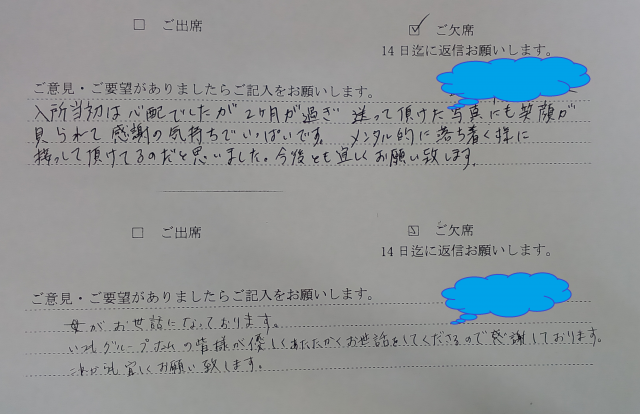 □ ご出席 ☑ ご欠席
14日迄に返信お願いします。
ご意見・ご要望がありましたらご記入をお願いします。
入所当初は心配でしたが2ヶ月が過ぎ 送って頂けた写真にも笑顔が
見られて感謝の気持ちでいっぱいです。 メンタル的に落ち着く様に
接っして頂けてるのだと思いました。今後とも宜しくお願い致します。
□ ご出席 ☑ ご欠席
14日迄に返信お願いします。
ご意見・ご要望がありましたらご記入をお願いします。
母がお世話になっております。
いつもグループホームの皆様が優しくあたたかくお世話をしてくださるので感謝しております。
宜しくお願い致します。